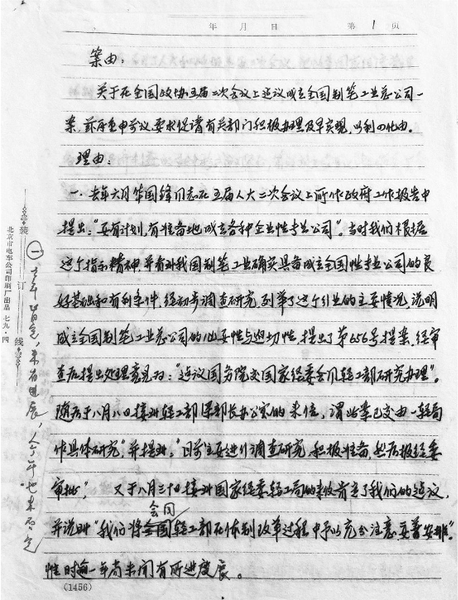 年 月 日 第 1 页
案由：
关于在全国政协五届二次会议上建议成立全国制笔工业总公司一
案，兹再重申前议，要求促请有关部门积极办理及早实现，以利四化由。
理由：
一、去年六月华国锋同志在五届人大二次会议上所作政府工作报告中
提出："要有计划、有准备地成立各种企业性专业公司"。当时我们根据
这个指示精神，并看到我国制笔工业确实具备成立全国性专业公司的良
好基础和有利条件，经初步调查研究，列举了这个行业的主要情况，说明
成立全国制笔工业总公司的必要性与迫切性，提出了第656号提案，经审
查后提出处理意见为："建议国务院交国家经委会同轻工部研究办理"。
随后于八月八日接到轻工部部长办公室的来信，谓此案已交由一轻局
作具体研究，并提到："目前主要进行调查研究，积极准备，然后报经委
审批" 又于八月三十日接到国家经委轻工局的来信，肯定了我们的建议，
并说明"我们将会同轻工部在体制改革过程中予以充分注意妥善安排"。
惟时逾一年尚未闻有所进度展。
(1456)
装 订 线
北京市电车公司印刷厂出品 七九·四